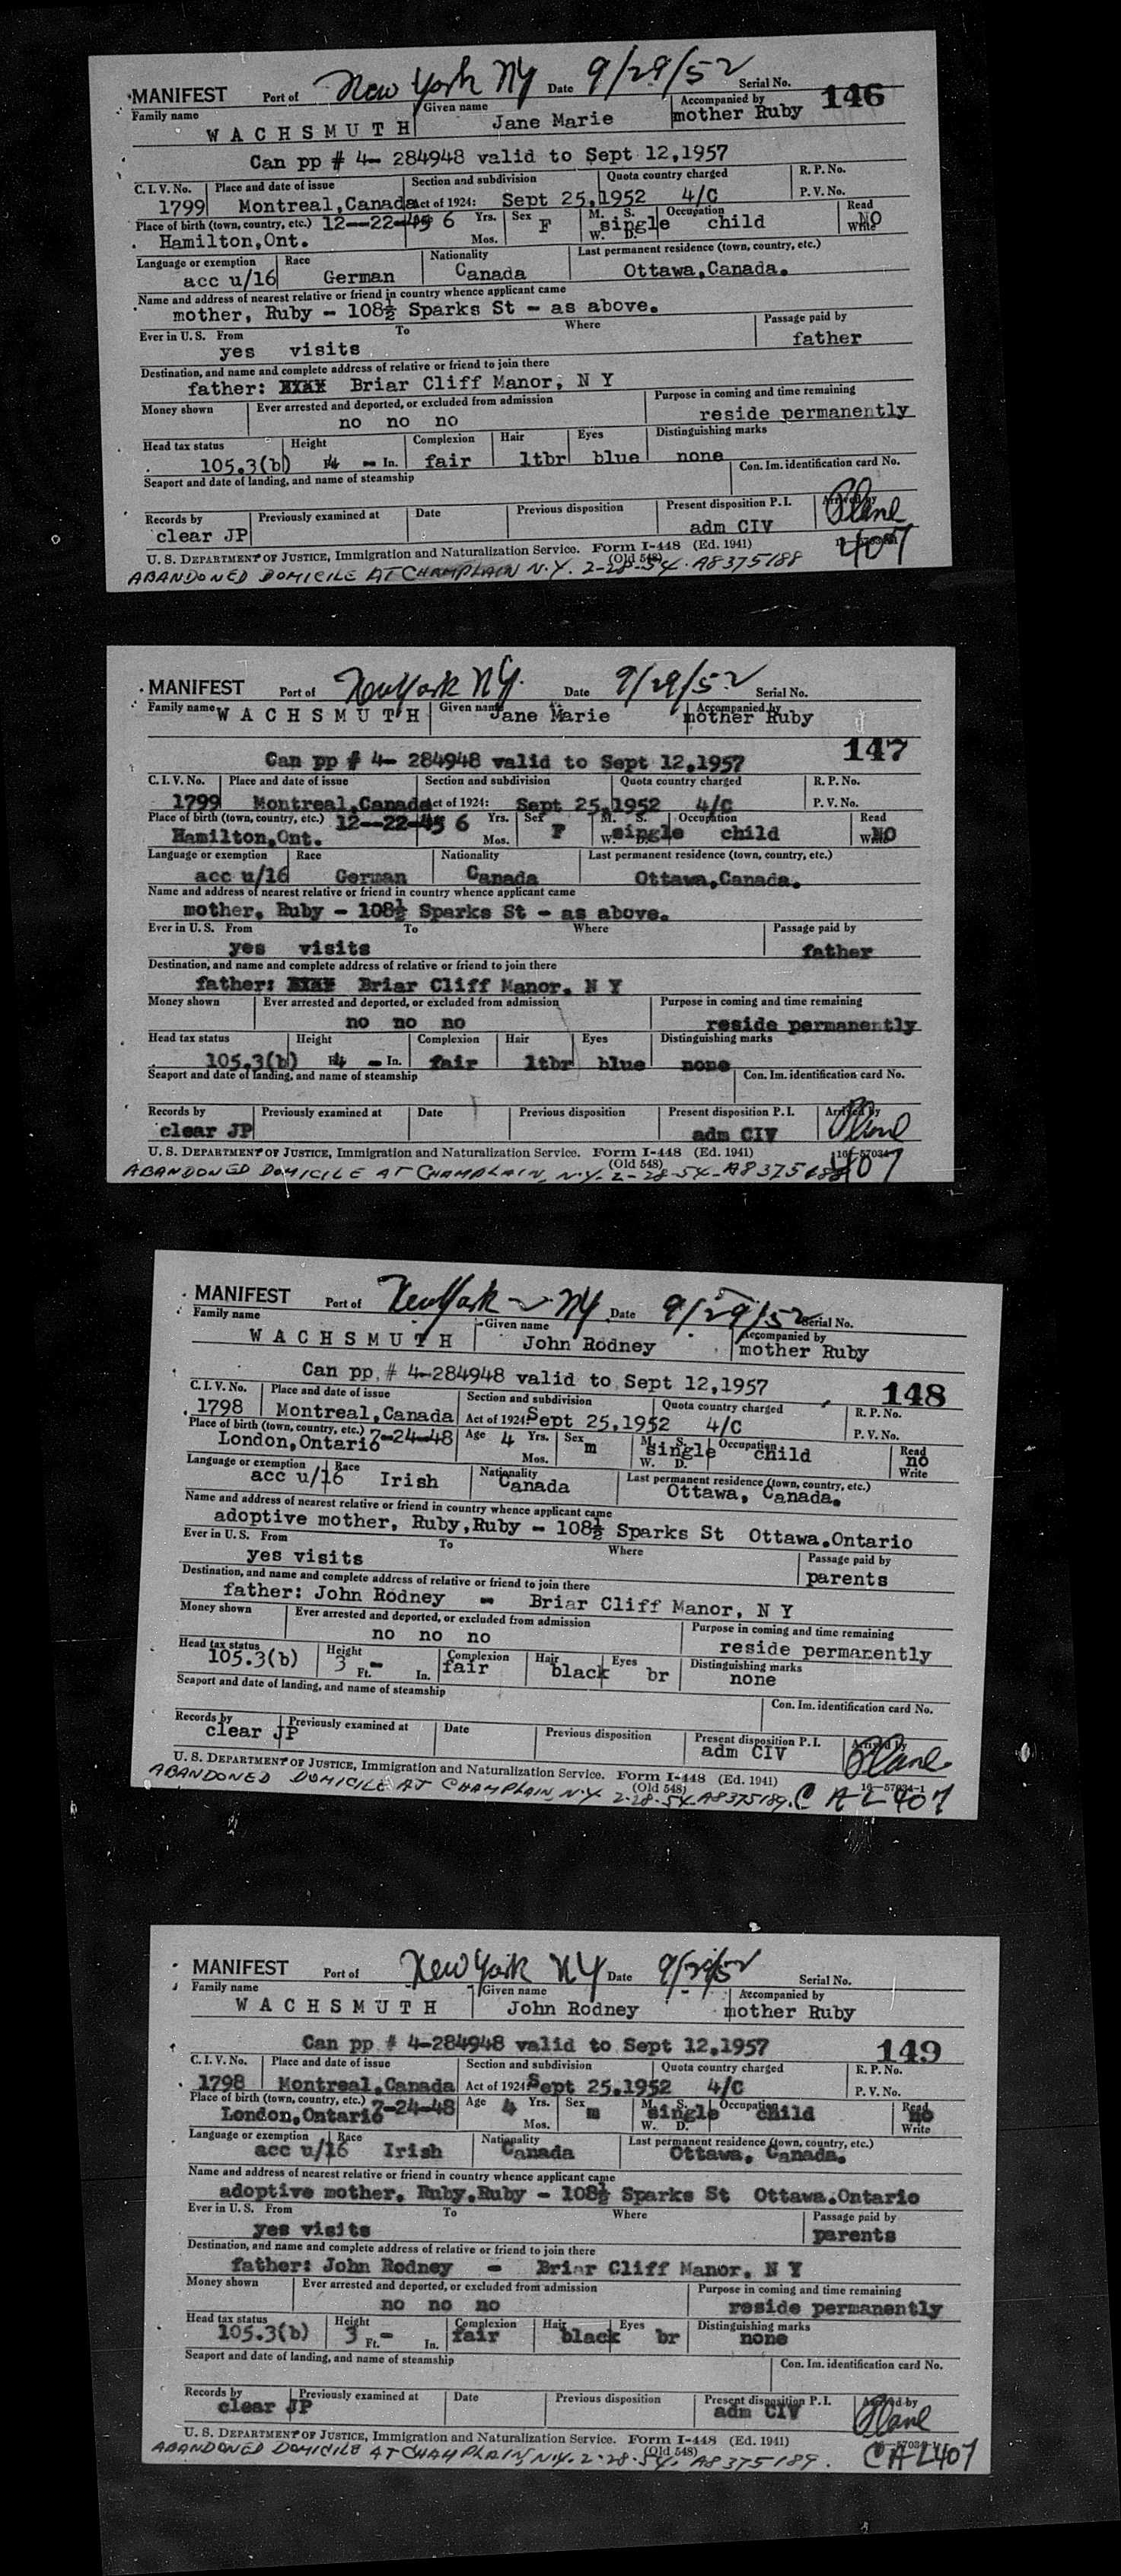 MANIFEST Port of New York NY Date 9/29/52 Serial No.
Family name Given name Accompanied by 146
WACHSMUTH Jane Marie mother Ruby
Can pp # 4- 284948 valid to Sept 12,1957
C. I. V. No. Place and date of issue Section and subdivision Quota country charged R. P. No.
1799 Montreal,Canada Act of 1924: Sept 25,1952 4/C P. V. No.
Place of birth (town, country, etc.) 12--22-45 6 Yrs. Sex M. S. Occupation Read
Hamilton,Ont. Mos. F W. single D. child NO Write
Language or exemption Race Nationality Last permanent residence (town, country, etc.)
acc u/16 German Canada Ottawa,Canada.
Name and address of nearest relative or friend in country whence applicant came
mother, Ruby - 108½ Sparks St - as above.
Ever in U. S. From To Where Passage paid by
yes visits father
Destination, and name and complete address of relative or friend to join there
father: Briar Cliff Manor, N Y
Money shown Ever arrested and deported, or excluded from admission Purpose in coming and time remaining
no no no reside permanently
Head tax status Height Complexion Hair Eyes Distinguishing marks
105.3(b) 4 - In. fair ltbr blue none
Seaport and date of landing, and name of steamship Con. Im. identification card No.
Records by Previously examined at Date Previous disposition Present disposition P. I. Arrived by
clear JP adm CIV
U. S. DEPARTMENT OF JUSTICE, Immigration and Naturalization Service. Form I-448 (Ed. 1941)
(Old 548) 407
ABANDONED DOMICILE AT CHAMPLAIN N.Y. 2-28-54. A8375188
MANIFEST Port of New York NY. Date 9/29/52 Serial No.
Family name Given name Accompanied by
WACHSMUTH Jane Marie mother Ruby
147
Can pp # 4- 284948 valid to Sept 12,1957
C. I. V. No. Place and date of issue Section and subdivision Quota country charged R. P. No.
1799 Montreal,Canada Act of 1924: Sept 25,1952 4/C P. V. No.
Place of birth (town, country, etc.) 12--22-45 6 Yrs. Sex M. S. Occupation Read
Hamilton,Ont. Mos. F W. single D. child NO Write
Language or exemption Race Nationality Last permanent residence (town, country, etc.)
acc u/16 German Canada Ottawa,Canada.
Name and address of nearest relative or friend in country whence applicant came
mother, Ruby - 108½ Sparks St - as above.
Ever in U. S. From To Where Passage paid by
yes visits father
Destination, and name and complete address of relative or friend to join there
father: Briar Cliff Manor, N Y
Money shown Ever arrested and deported, or excluded from admission Purpose in coming and time remaining
no no no reside permanently
Head tax status Height Complexion Hair Eyes Distinguishing marks
105.3(b) 4 - In. fair ltbr blue none
Seaport and date of landing, and name of steamship Con. Im. identification card No.
Records by Previously examined at Date Previous disposition Present disposition P. I. Arrived by
clear JP adm CIV
U. S. DEPARTMENT OF JUSTICE, Immigration and Naturalization Service. Form I-448 (Ed. 1941)
(Old 548) 407
ABANDONED DOMICILE AT CHAMPLAIN, N.Y. 2-28-54-A8375188
MANIFEST Port of New York NY Date 9/29/52 Serial No.
Family name Given name Accompanied by
WACHSMUTH John Rodney mother Ruby
Can pp # 4-284948 valid to Sept 12,1957 148
C. I. V. No. Place and date of issue Section and subdivision Quota country charged R. P. No.
1798 Montreal,Canada Act of 1924: Sept 25,1952 4/C P. V. No.
Place of birth (town, country, etc.) 7-24-48 Age 4 Yrs. Sex M. S. Occupation Read
London,Ontario Mos. m W. single D. child no Write
Language or exemption Race Nationality Last permanent residence (town, country, etc.)
acc u/16 Irish Canada Ottawa, Canada.
Name and address of nearest relative or friend in country whence applicant came
adoptive mother, Ruby,Ruby - 108½ Sparks St Ottawa.Ontario
Ever in U. S. From To Where Passage paid by
yes visits parents
Destination, and name and complete address of relative or friend to join there
father: John Rodney - Briar Cliff Manor, N Y
Money shown Ever arrested and deported, or excluded from admission Purpose in coming and time remaining
no no no reside permanently
Head tax status Height Complexion Hair Eyes Distinguishing marks
105.3(b) 3 Ft. - In. fair black br none
Seaport and date of landing, and name of steamship Con. Im. identification card No.
Records by Previously examined at Date Previous disposition Present disposition P. I. Arrived by
clear JP adm CIV
U. S. DEPARTMENT OF JUSTICE, Immigration and Naturalization Service. Form I-448 (Ed. 1941)
(Old 548) 16-57034-1
ABANDONED DOMICILE AT CHAMPLAIN, N.Y. 2-28-54 A8375189. C A L 407
MANIFEST Port of New York NY Date 9/29/52 Serial No.
Family name Given name Accompanied by
WACHSMUTH John Rodney mother Ruby
Can pp # 4-284948 valid to Sept 12,1957 149
C. I. V. No. Place and date of issue Section and subdivision Quota country charged R. P. No.
1798 Montreal,Canada Act of 1924: Sept 25,1952 4/C P. V. No.
Place of birth (town, country, etc.) 7-24-48 Age 4 Yrs. Sex M. S. Occupation Read
London,Ontario Mos. m W. single D. child no Write
Language or exemption Race Nationality Last permanent residence (town, country, etc.)
acc u/16 Irish Canada Ottawa, Canada.
Name and address of nearest relative or friend in country whence applicant came
adoptive mother, Ruby,Ruby - 108½ Sparks St Ottawa.Ontario
Ever in U. S. From To Where Passage paid by
yes visits parents
Destination, and name and complete address of relative or friend to join there
father: John Rodney - Briar Cliff Manor, N Y
Money shown Ever arrested and deported, or excluded from admission Purpose in coming and time remaining
no no no reside permanently
Head tax status Height Complexion Hair Eyes Distinguishing marks
105.3(b) 3 Ft. - In. fair black br none
Seaport and date of landing, and name of steamship Con. Im. identification card No.
Records by Previously examined at Date Previous disposition Present disposition P. I. Arrived by
clear JP adm CIV
U. S. DEPARTMENT OF JUSTICE, Immigration and Naturalization Service. Form I-448 (Ed. 1941)
(Old 548)
ABANDONED DOMICILE AT CHAMPLAIN, N.Y. 2-28-54. A8375189. CAL407